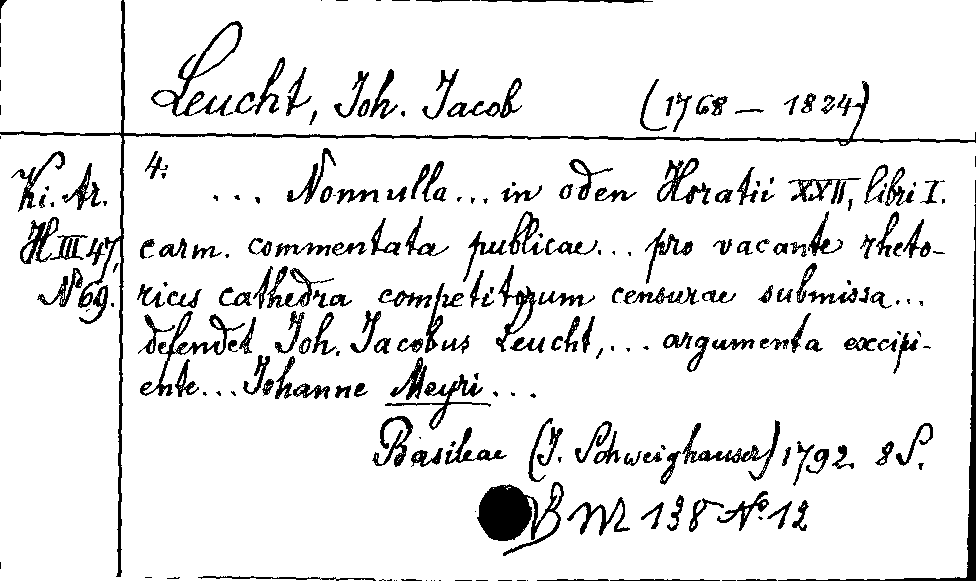 Leucht, Joh. Jacob (1768 — 1824)
Ki. Ar.
H III 47,
No 69.
4:
... Nonnulla... in oden Horatii XXII, libri I.
carm. commentata publicae... pro vacante rheto-
rices cathedra competitorum censurae submissa...
defendet Joh. Jacobus Leucht,... argumenta excipi-
ente... Johanne Meyri...
Basileae (J. Schweighauser) 1792. 8 S.
No 12